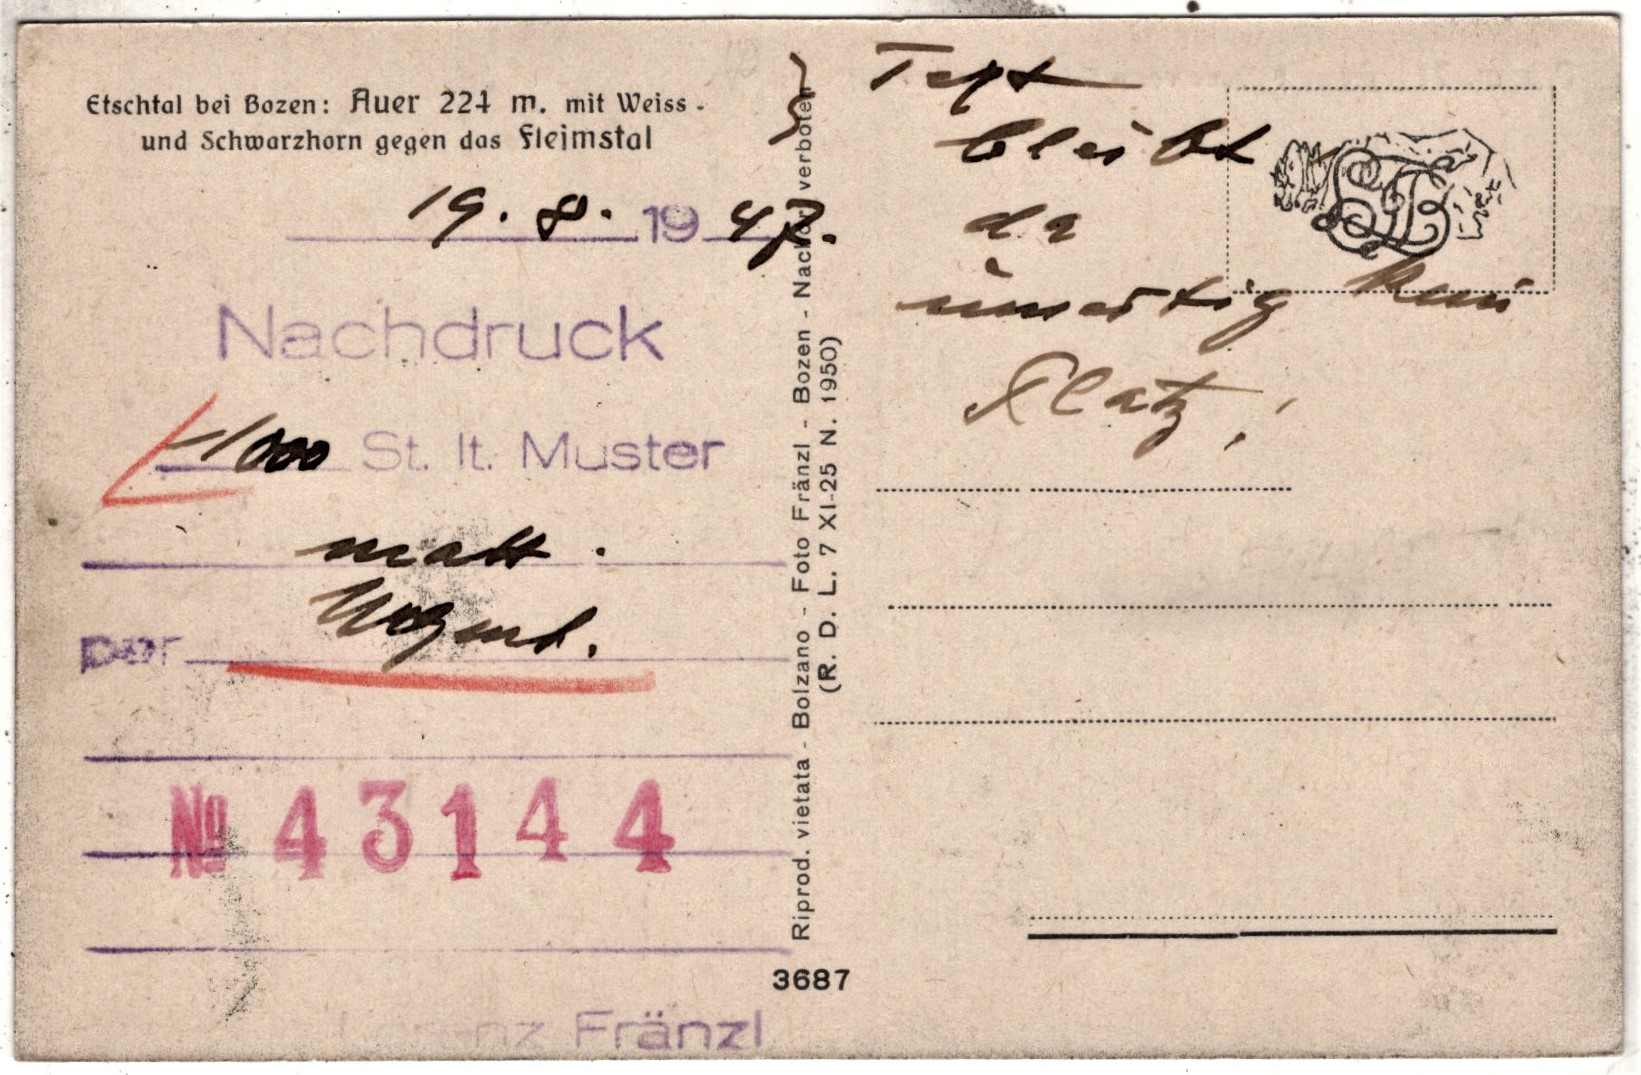 Etschtal bei Bozen: Auer 224 m. mit Weiss-
und Schwarzhorn gegen das Fleimstal
19. 8. 1947.
Nachdruck
1000 St. lt. Muster
matt.
per
№ 43144
Lorenz Fränzl
Riprod. vietata - Bolzano - Foto Fränzl - Bozen - Nachdr. verboten
(R. D. L. 7 XI-25 N. 1950)
3687
Text
bleibt
da
kein
Platz!